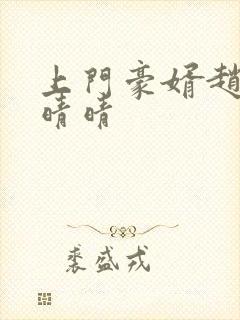 上門豪婿趙
晴晴
裘盛戎